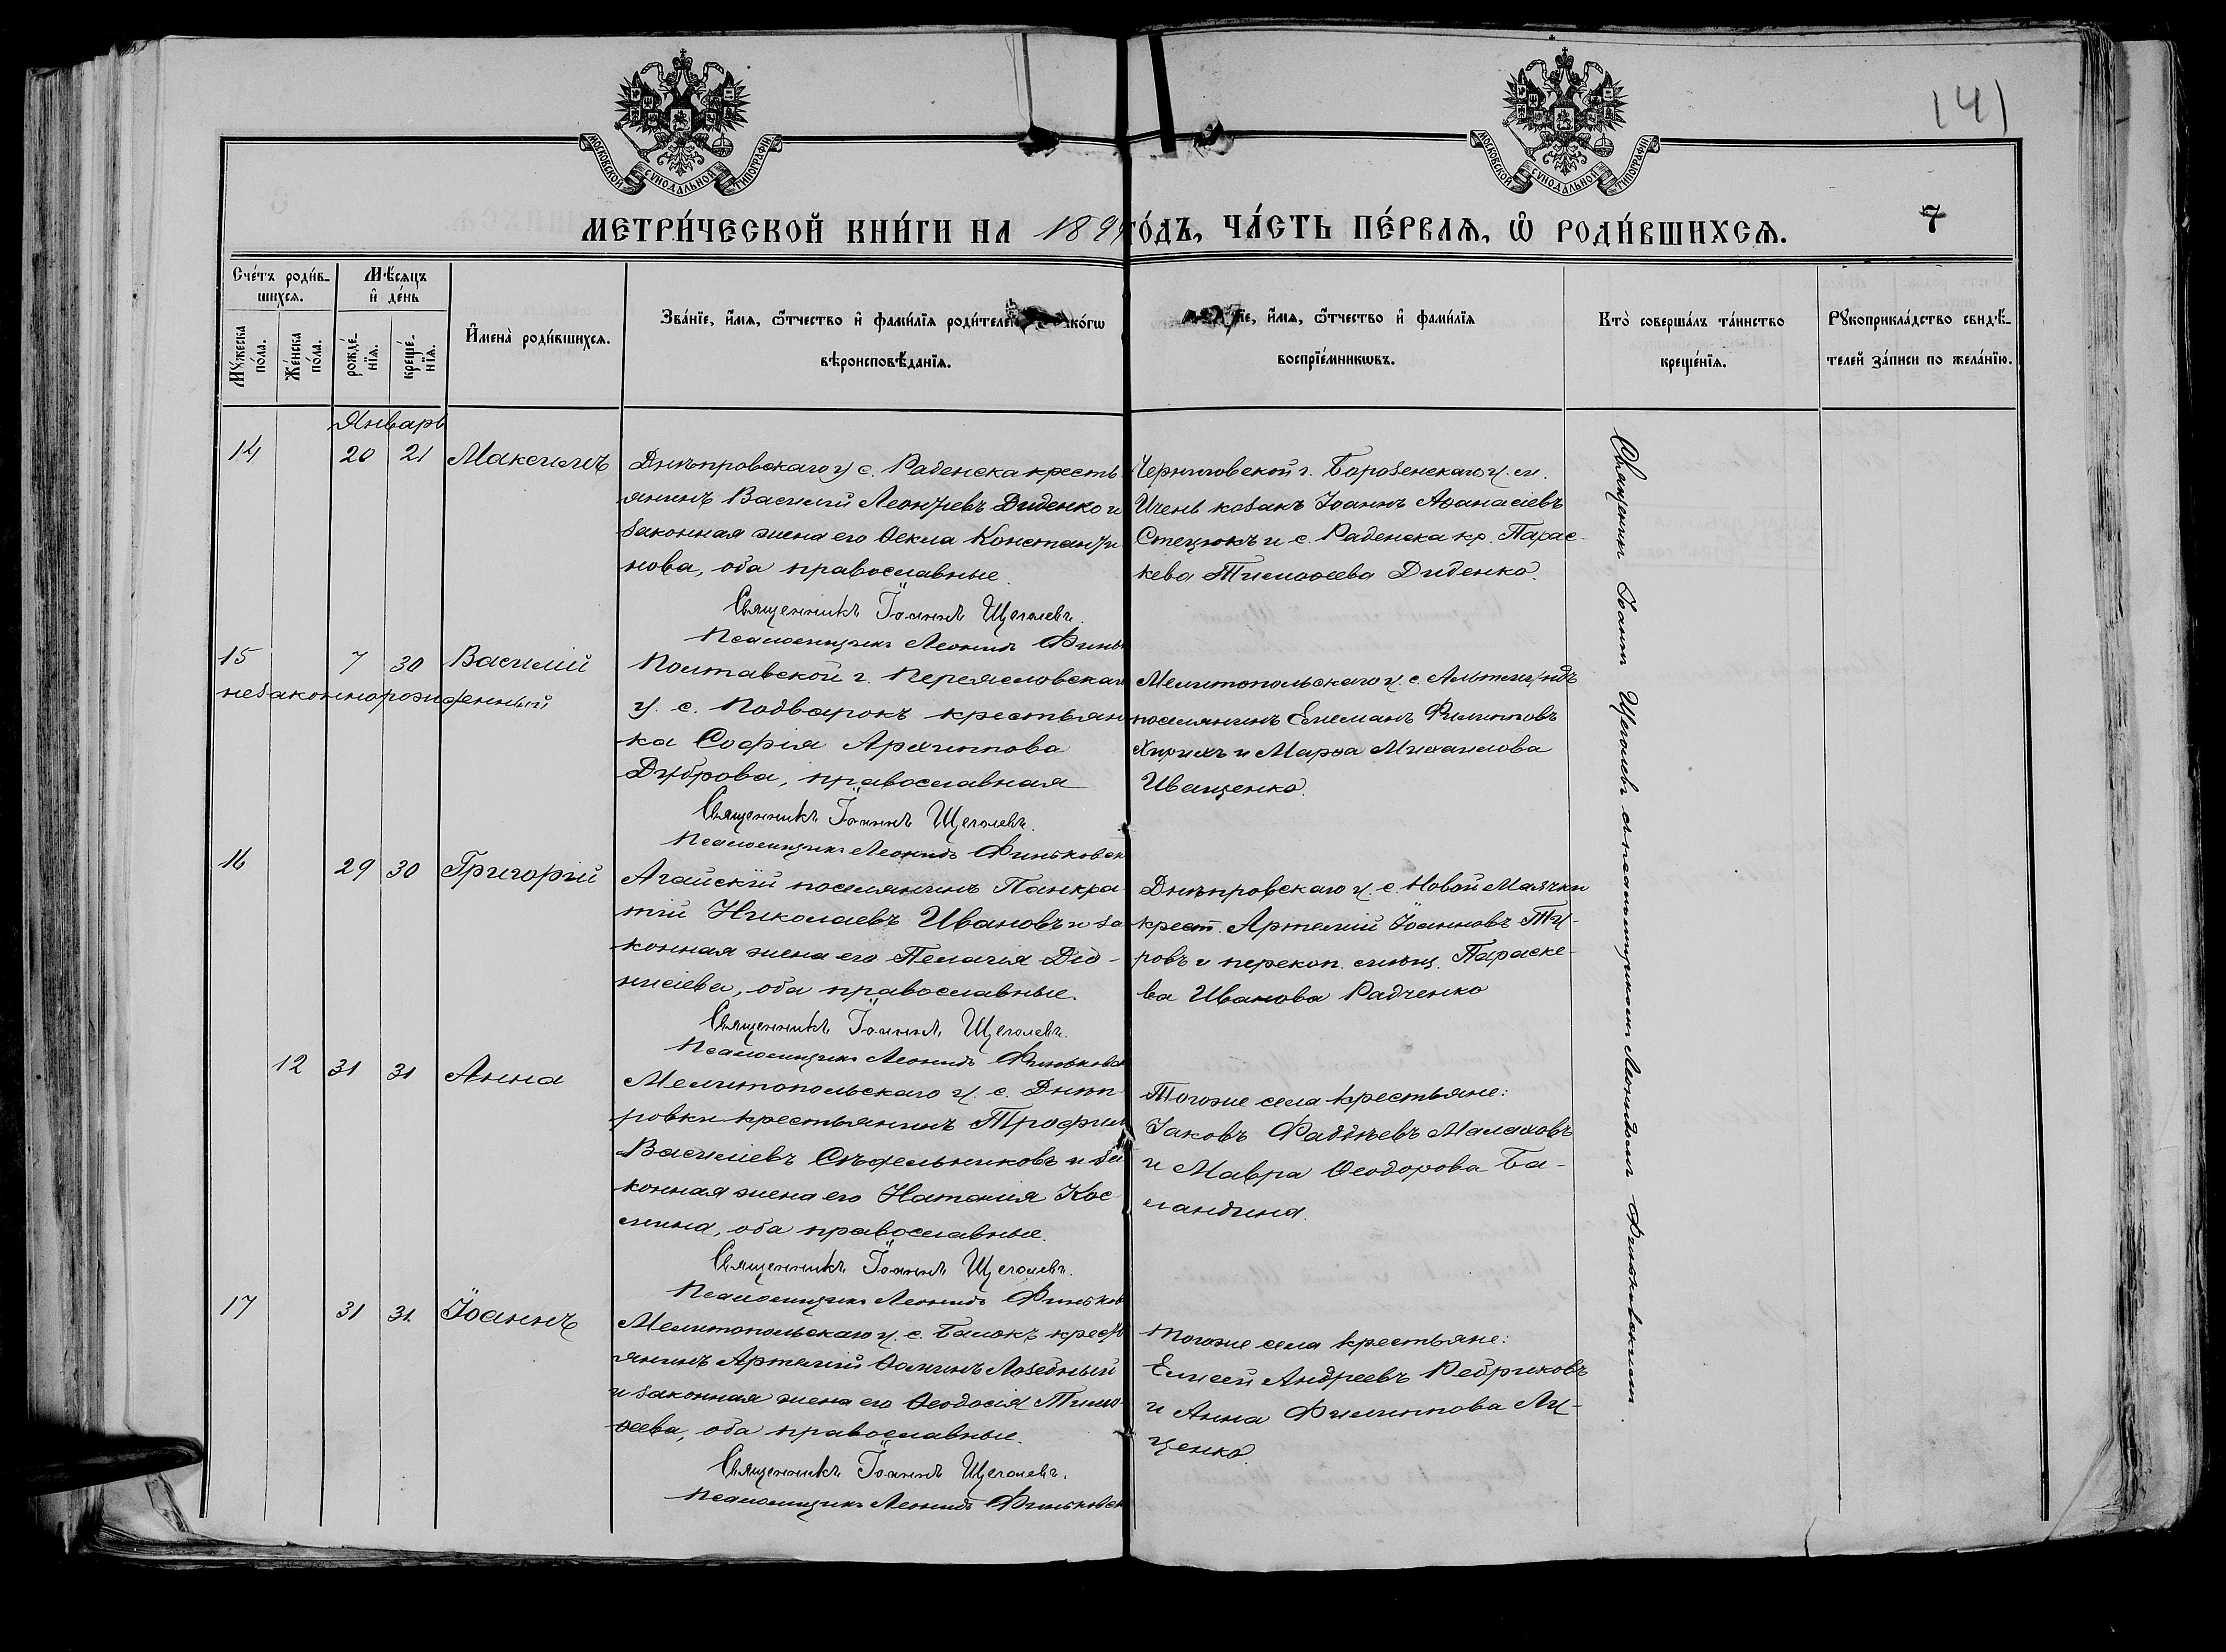 141
МОСКОВСКОЙ СѴНОДАЛЬНОЙ ТИПОГРАФІИ
МОСКОВСКОЙ СѴНОДАЛЬНОЙ ТИПОГРАФІИ
МЕТРИ́ЧЕСКОЙ КНИ́ГИ НА 189 ГО́ДЪ, ЧА́СТЬ ПЕ́РВАѦ, Ѡ҆ РОДИ́ВШИХСѦ.
7
Сче́тъ роди́в-
шихсѧ.
Мѣ́сѧцъ
и҆ де́нь
Мꙋ́жеска по́ла.
Же́нска по́ла.
рожде́-
нїѧ.
креще́-
нїѧ.
И҆мена̀ роди́вшихсѧ.
Зва́нїе, и҆́мѧ, ѻ҆́тчество и҆ фами́лїѧ роди́телей
вѣроисповѣ́данїѧ.
и҆́мѧ, ѻ҆́тчество и҆ фами́лїѧ
воспрїе́мникѡвъ.
Кто̀ соверша́лъ та́инство
креще́нїѧ.
Рꙋкоприкла́дство свидѣ́-
телей за́писи по жела́нїю.
Январь
14 20 21 Максимъ
Днѣпровскаго у. с. Раденска кресть
янинъ Василий Леонтіевъ Диденко и
законная жена его Ѳекла Константи
нова, оба православные.
Священникъ Іоаннъ Щеголевъ.
Псаломщикъ Леонидъ Финь
Черниговской г. Борзенскаго у. м.
Ичень козакъ Іоаннъ Аѳанасіевъ
Стецюкъ и с. Раденска кр. Парас-
кева Тимоѳеева Диденко.
15 7 30 Василій
незаконнорожденный
Полтавской г. Переясловскаго
у. с. Подварокъ крестьян
ка Софія Архиппова
Дуброва, православная
Священникъ Іоаннъ Щеголевъ.
Псаломщикъ Леонидъ Финьковск
Мелитопольскаго у. с.
поселянинъ Филипповъ
и Марѳа Михаилова
Иващенко.
16 29 30 Григорій
Агайскій поселянинъ Панкра
тій Николаевъ Ивановъ и за
конная жена его Пелагія Діо-
нисіева, оба православные.
Священникъ Іоаннъ Щеголевъ.
Псаломщикъ Леонидъ Финьковск
Днѣпровскаго у. с. Новой Маячки
крест. Артемій Іоанновъ Ту-
ровъ и перекоп. мѣщ. Параске-
ва Иванова Радченко
12 31 31 Анна
Мелитопольскаго у. с. Днѣп
ровки крестьянинъ Трофим
Василіевъ Сѣдельниковъ и за
конная жена его Наталия Кос
мина, оба православные.
Священникъ Іоаннъ Щеголевъ.
Псаломщикъ Леонидъ Финьков
Тогоже села крестьяне:
Іаковъ Фаддѣевъ Малаховъ
и Мавра Ѳеодорова Ба-
ландина.
17 31 31 Іоаннъ
Мелитопольскаго у. с. Балокъ крест
янинъ Артемій Ѳоминъ Лозебный
и законная жена его Ѳеодосія Тимо
ѳеева, оба православные.
Священникъ Іоаннъ Щеголевъ.
Псаломщикъ Леонидъ Финьковск
тогоже села крестьяне:
Елисей Андреевъ Ребриковъ
и Анна Филиппова Лу-
ценко.
Священникъ Іоаннъ Щеголевъ съ псаломщикомъ Леонидомъ Финьковскимъ.